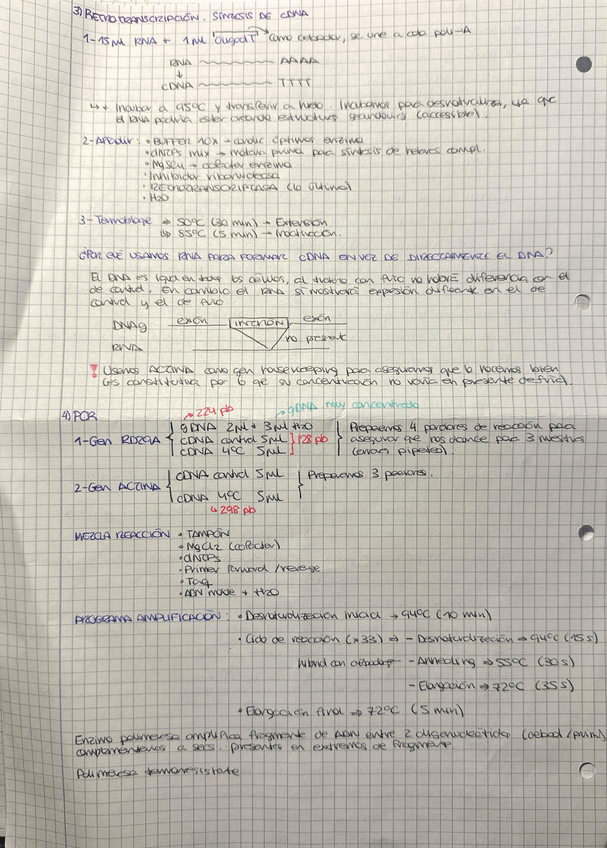 3) RETROTRANSCRIPCIÓN. SÍNTESIS DE cDNA
1-15 µl RNA + 1 µl "oligodT" → como cebador, se une a cola poli-A
RNA AAAA
↓
cDNA TTTT
↳ + Incubar a 95ºC y transferir a hielo. Incubamos para desnaturalizar, ya que
el RNA podría estar creando estructuras secundarias (accesible).
2-Añadir: • BUFFER 10X → condic óptimas enzima
• dNTPs mix → materia prima para síntesis de hebras compl.
• MgSO4 → cofactor enzima
• Inhibidor ribonucleasa
• RETROTRANSCRIPTASA (lo último)
• H2O
3- Termobloque ⇒ 50ºC (30 min) → Extensión
↳ 55ºC (5 min) → Inactivación.
¿POR QUÉ USAMOS RNA PARA FORMAR cDNA EN VEZ DE DIRECTAMENTE EL DNA?
El DNA es igual en todas las células, al tratarlo con frío no habrá diferencia con el
de control. En cambio el RNA sí mostrará expresión diferente en el de
control y el de frío
DNAg exón INTRÓN exón
no present
RNA
! Usamos ACTINA como gen housekeeping para asegurarnos que lo hacemos bien
(es constitutiva por lo que su concentración no varía en presente de frío).
4) PCR → 224 pb → gDNA muy concentrado
1-Gen RD29A gDNA 2 µl + 3 µl H2O Preparamos 4 porciones de reacción para
cDNA control 5 µl 128 pb asegurar que nos alcance para 3 muestras
cDNA 4ºC 5 µl (errores pipeteo).
2-Gen ACTINA cDNA control 5 µl Preparamos 3 porciones.
cDNA 4ºC 5 µl
↳ 298 pb
MEZCLA REACCIÓN • TAMPÓN
• MgCl2 (cofactor)
• dNTPs
• Primer forward / reverse
• Taq
• ADN molde + H2O
PROGRAMA AMPLIFICACIÓN: • Desnaturalización inicial → 94ºC (10 min)
• Ciclo de reacción (x33) ⇒ - Desnaturalización ⇒ 94ºC (15 s)
hibrid con cebadores - Annealing ⇒ 55ºC (30 s)
- Elongación ⇒ 72ºC (35 s)
• Elongación final ⇒ 72ºC (5 min)
Enzima polimerasa amplifica fragmento de ADN entre 2 oligonucleótidos (cebad / prim)
complementarios a secs. presentes en extremos de fragmento
Polimerasa termorresistente